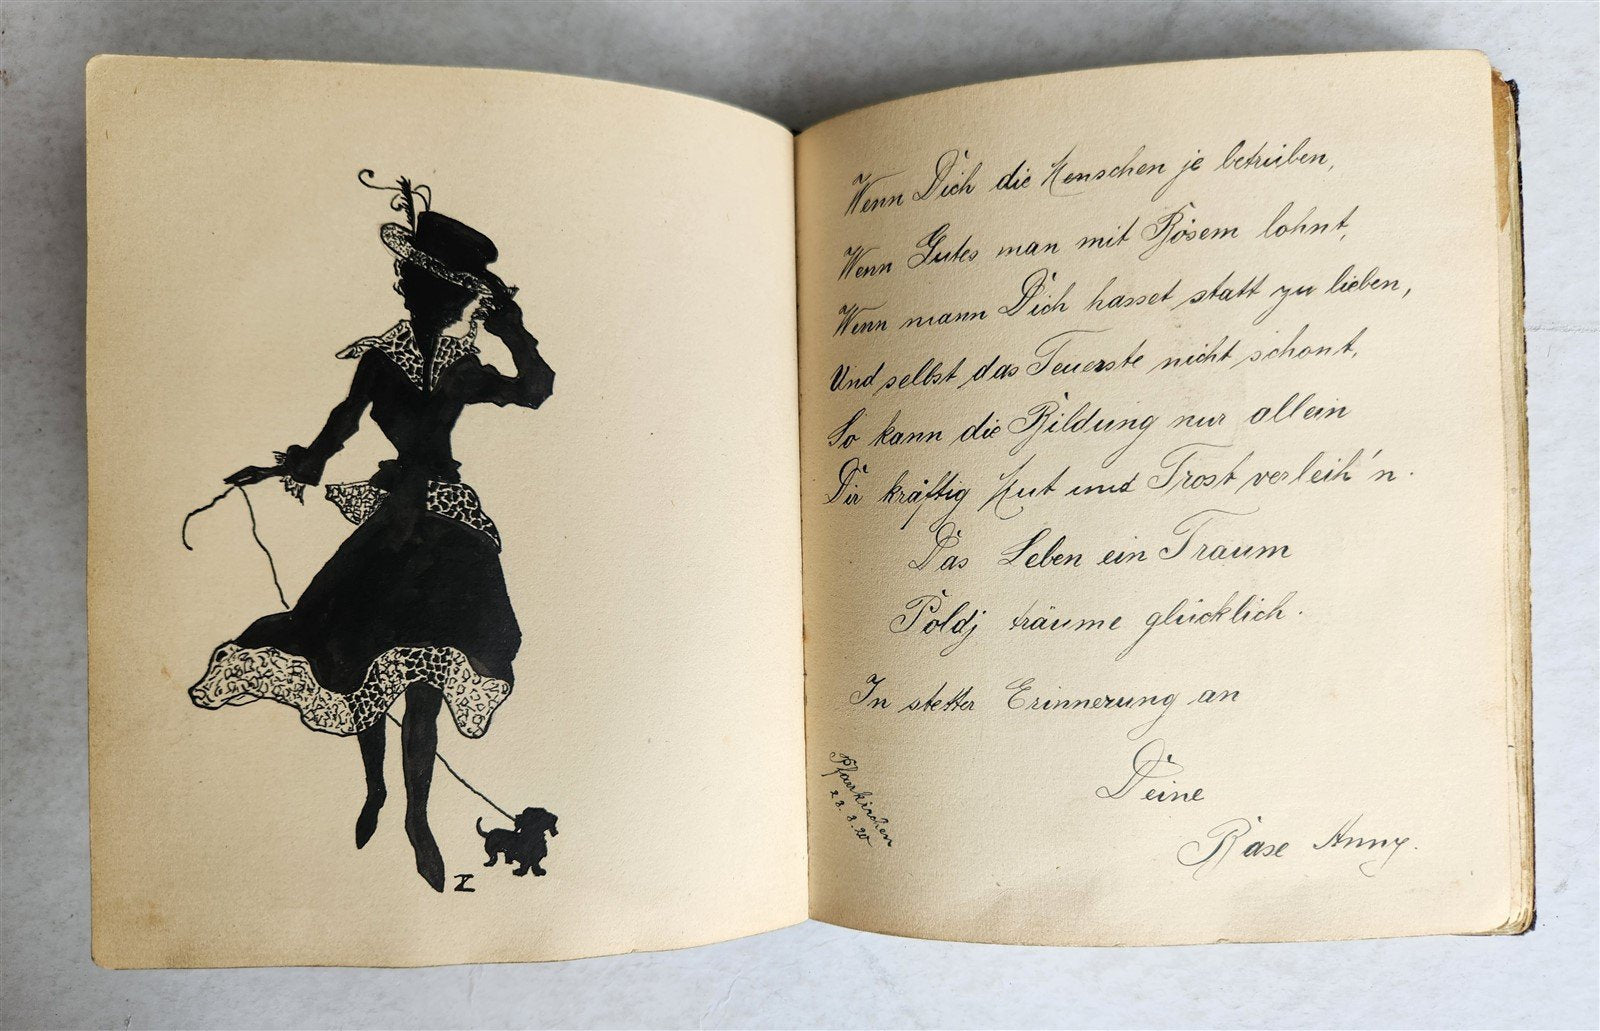 Z
Wenn Dich die Menschen je betrüben,
Wenn Gutes man mit Bösem lohnt,
Wenn mann Dich hasset statt zu lieben,
Und selbst das Teuerste nicht schont,
So kann die Bildung nur allein
Dir kräftig Mut und Trost verleih'n.
Das Leben ein Traum
Poldj träume glücklich.
In stetter Erinnerung an
Deine
Rase Anny.
Pfarrkirchen
23.3.20